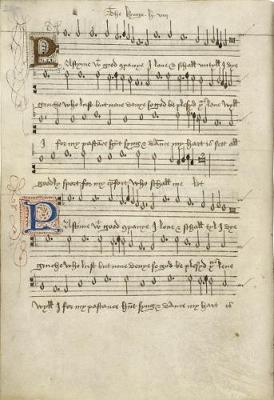 The kynge h. viij
Pastyme wt good companye I love & shall untyll I dye
gruche who lust but none denye so god be plesyd thus leve wyll
I for my pastance hunt synge & dance my hart is sett all
goodly sport for my comfort who shall me let
Pastyme wt good companye I love & shall tyl I dye
gruche who lust but none denye so god be plesyd thus leve
wyll I for my pastance hunt synge & dance my hart is